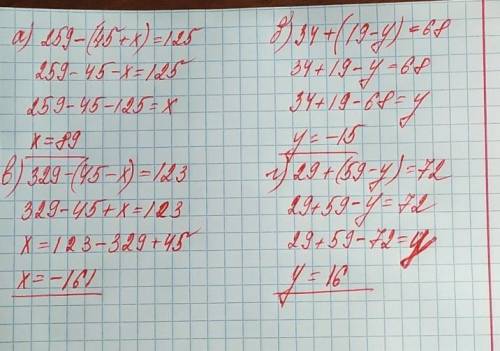 а) 259-(45+x)=125
259-45-x=125
259-45-125=x
x=89
б) 34+(19-y)=68
34+19-y=68
34+19-68=y
y=-15
в) 329-(45-x)=123
329-45+x=123
x=123-329+45
x=-161
г) 29+(59-y)=72
29+59-y=72
29+59-72=y
y=16